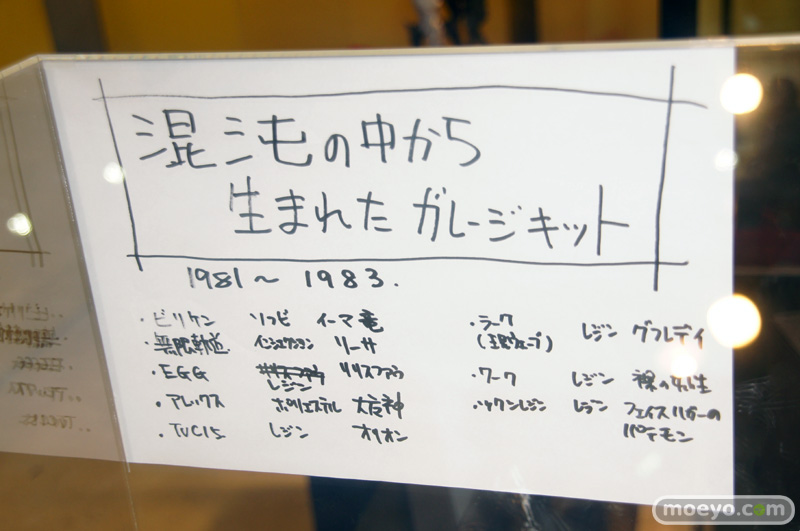 混沌の中から
生まれた ガレージキット
1981〜1983.
・ビリケン ソフビ イーマ竜
・無限軌道 インジェクション リーサ
・EGG レジン リリスファウ
・アレックス ポリエステル 大魔神
・TVC15 レジン オリオン
・ラーク レジン グフレディ
・ワーク レジン 裸の先生
レジン フェイスハガーの
バテモン
moeyo.com